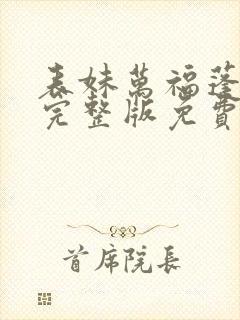 表妹萬福蓬
完整版免費
首席院長